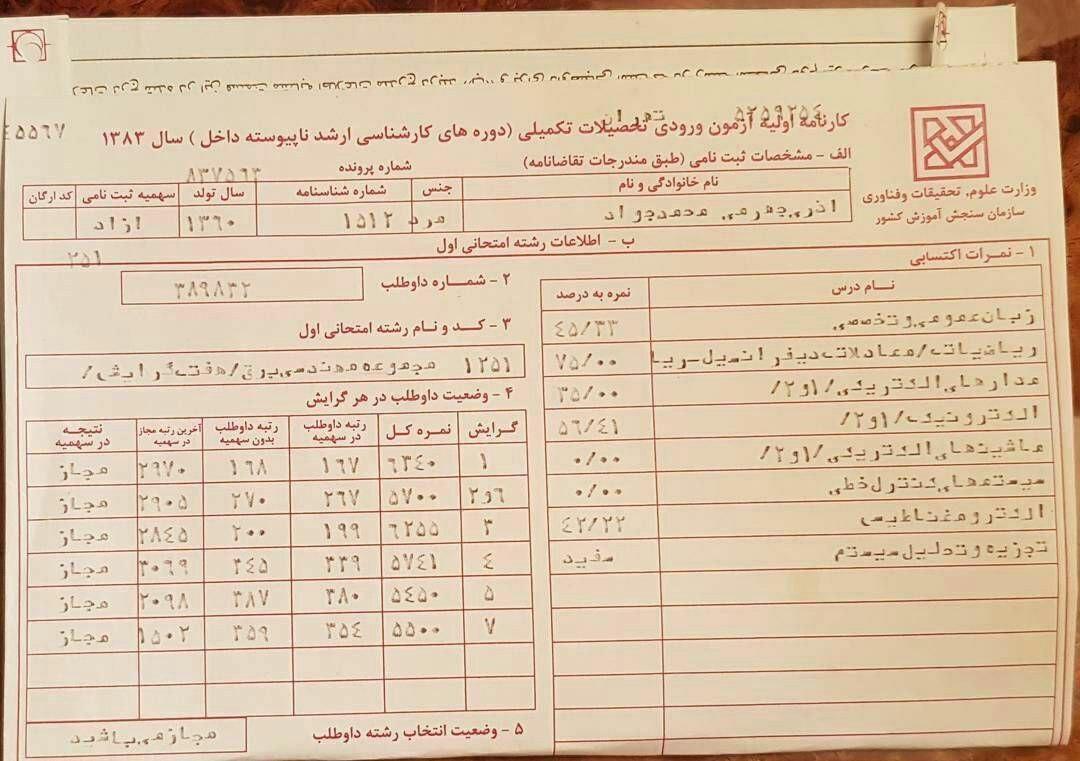 ۴۵۵۶۷
تهران ۵۲۵۹۲۵۴
کارنامه اولیه آزمون ورودی تحصیلات تکمیلی (دوره های کارشناسی ارشد ناپیوسته داخل) سال ۱۳۸۳
وزارت علوم، تحقیقات وفناوری
سازمان سنجش آموزش کشور
الف - مشخصات ثبت نامی (طبق مندرجات تقاضانامه) شماره پرونده
۸۳۷۵۶۳
نام خانوادگی و نام جنس شماره شناسنامه سال تولد سهمیه ثبت نامی کد ارگان
اذری جهرمی محمدجواد مرد ۱۵۱۲ ۱۳۶۰ ازاد
ب - اطلاعات رشته امتحانی اول
۲۵۱
۱ - نمرات اکتسابی
نام درس نمره به درصد
زبان عمومی و تخصصی ۴۵/۳۳
ریاضیات/معادلات دیفرانسیل-ریا ۷۵/۰۰
مدارهای الکتریکی/۱و۲/ ۳۵/۰۰
الکترونیک/۱و۲/ ۵۶/۴۱
ماشینهای الکتریکی/۱و۲/ ۰/۰۰
سیستمهای کنترل خطی ۰/۰۰
الکترومغناطیس ۴۲/۲۲
تجزیه و تحلیل سیستم سفید
۲ - شماره داوطلب ۳۸۹۸۳۲
۳ - کد و نام رشته امتحانی اول
۱۲۵۱ مجموعه مهندسی برق/هفت گرایش/
۴ - وضعیت داوطلب در هر گرایش
گرایش نمره کل رتبه داوطلب در سهمیه رتبه داوطلب بدون سهمیه آخرین رتبه مجاز در سهمیه نتیجه در سهمیه
۱ ۶۳۴۰ ۱۶۷ ۱۶۸ ۲۹۷۰ مجاز
۲و۶ ۵۷۰۰ ۲۶۷ ۲۷۰ ۲۹۰۵ مجاز
۳ ۶۲۵۵ ۱۹۹ ۲۰۰ ۲۸۴۵ مجاز
۴ ۵۷۴۱ ۳۳۹ ۳۴۵ ۳۰۶۹ مجاز
۵ ۵۴۵۰ ۳۸۰ ۳۸۷ ۲۰۹۸ مجاز
۷ ۵۵۰۰ ۳۵۴ ۳۵۹ ۱۵۰۲ مجاز
۵ - وضعیت انتخاب رشته داوطلب مجاز می باشید